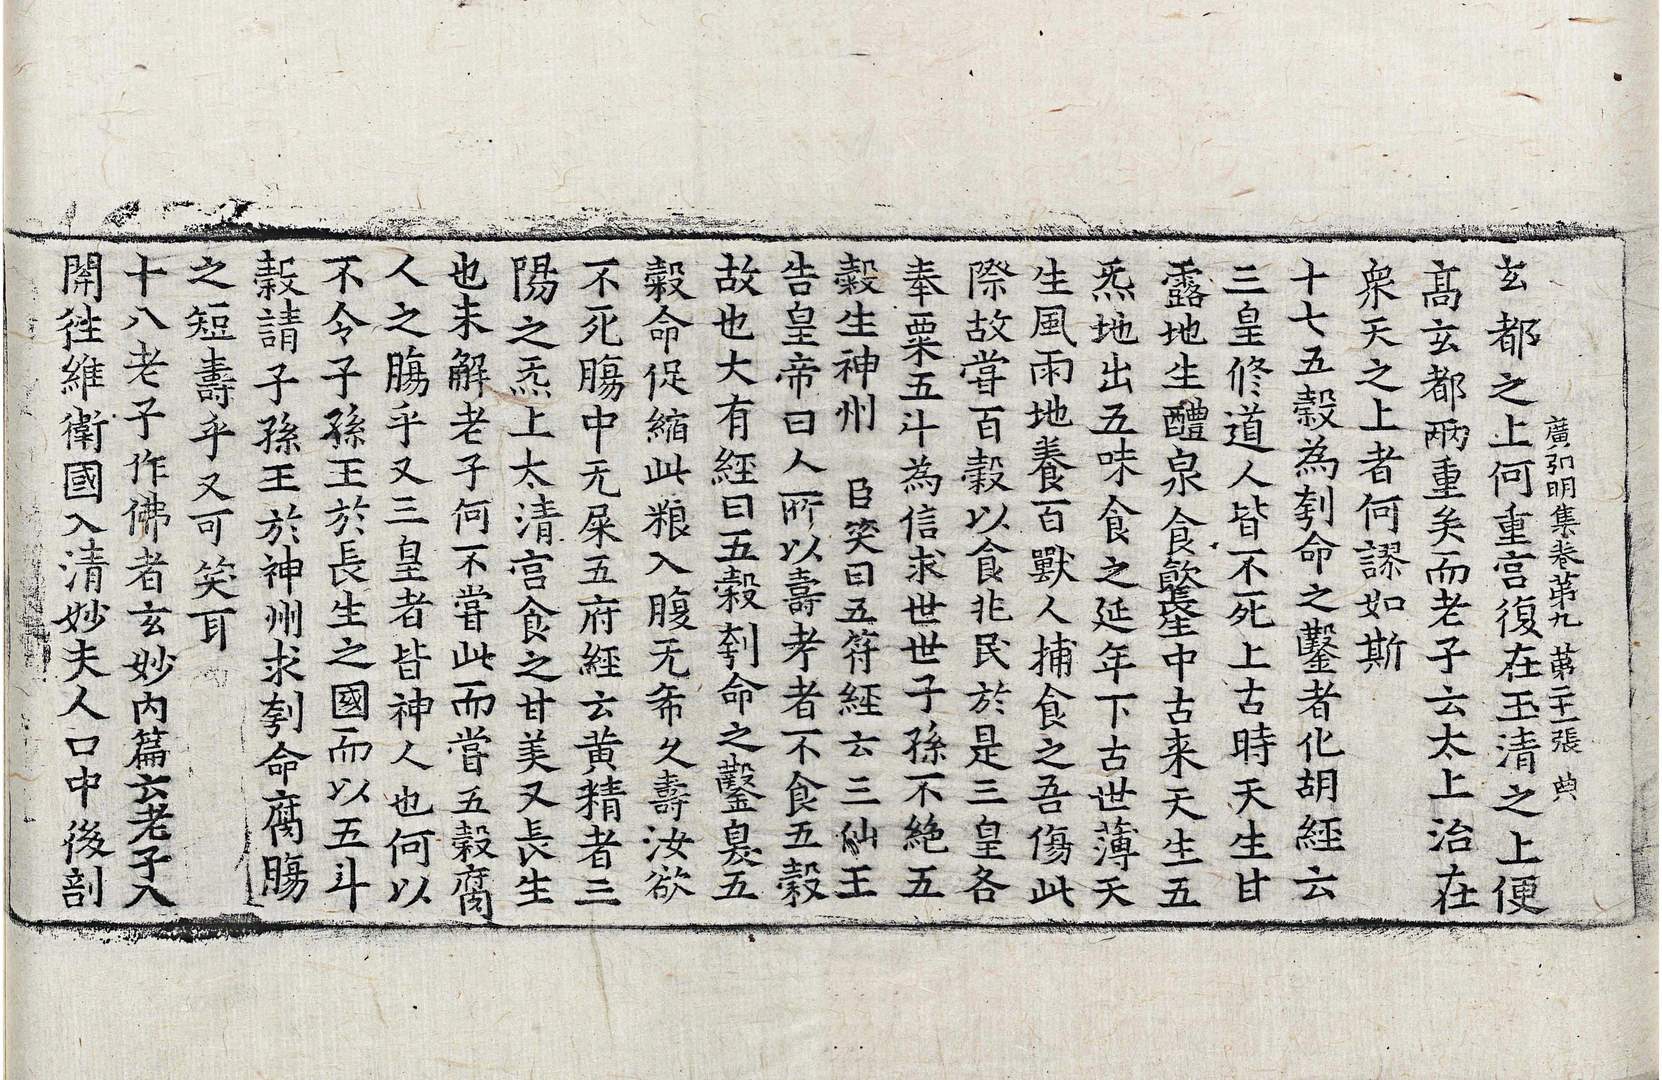 廣弘明集卷第九 第二十一張 典
玄都之上何重宫復在玉清之上便
髙玄都兩重矣而老子云太上治在
衆天之上者何謬如斯
十七五穀為刳命之鑿者化胡經云
三皇修道人皆不死上古時天生甘
露地生醴泉食飲長生中古来天生五
炁地出五味食之延年下古世薄天
生風雨地養百獸人捕食之吾傷此
際故甞百穀以食兆民於是三皇各
奉粟五斗為信求世世子孫不絶五
穀生神州 臣笑曰五符經云三仙王
告皇帝曰人所以壽考者不食五穀
故也大有經曰五穀刳命之鑿臭五
穀命促縮此粮入腹无希久壽汝欲
不死腸中无屎五府經云黄精者三
陽之炁上太清宫食之甘美又長生
也未解老子何不甞此而甞五穀腐
人之腸乎又三皇者皆神人也何以
不令子孫王於長生之國而以五斗
穀請子孫王於神州求刳命腐腸
之短壽乎又可笑耳
十八老子作佛者玄妙内篇云老子入
開往維衛國入清妙夫人口中後剖